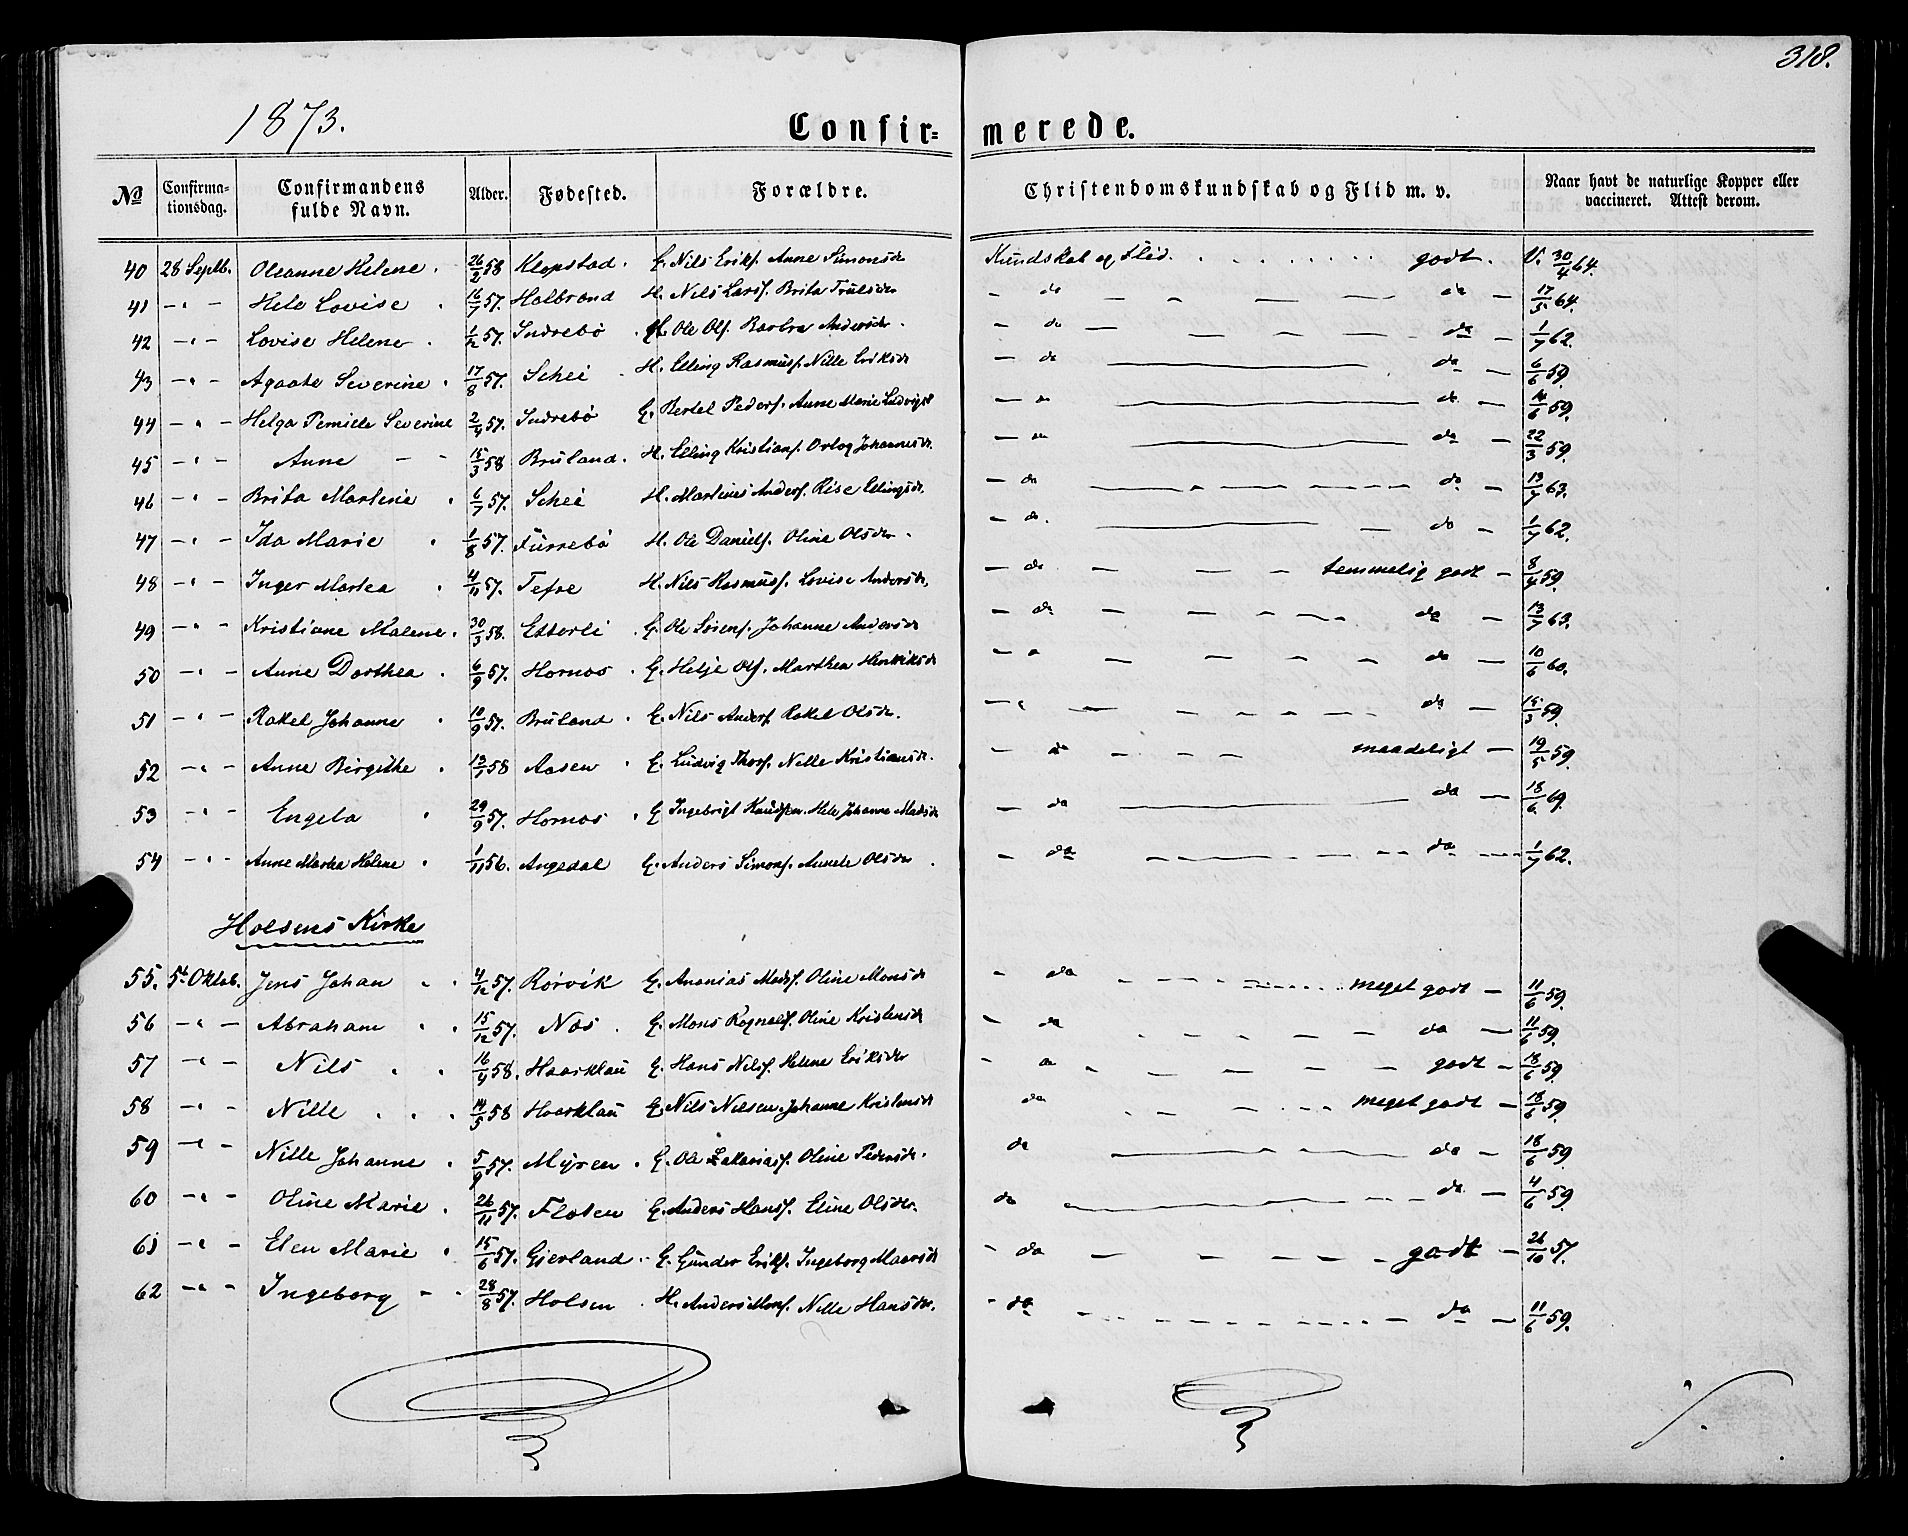 318.
1873.
Confir= merede.
No Confirmationsdag. Confirmandens fulde Navn. Alder. Fødested. Forældre. Christendomskundskab og Flid m. v. Naar havt de naturlige Kopper eller vaccineret. Attest derom.
40 28 Septb. Oleanne Helene. 26/2 58 Klopstad. G. Nils Eriks. Anne Simonsdr Kundskab og Flid. godt. V. 30/4 64.
41 - " - Hele Lovise 16/7 57. Halbrand H. Nils Lars. Brita Trulsdr - do - do - 17/5 64.
42 - " - Lovise Helene 1/12 57. Indrebø H. Ole Ols. Barbra Andersdr. - do - do - 1/7 62.
43 - " - Agaate Severine 17/8 57. Schei H. Elling Rasmus. Nille Eriksdr - do - do - 6/6 59.
44 - " - Helga Pernille Severine 2/4 57. Indrebø G. Bertel Peders. Anne Marie Ludvigsd - do - do - 14/6 59.
45 - " - Anne - - 15/3 58 Bruland. H. Elling Kristians. Orlog Johannesdr. - do - do - 22/3 59.
46 - " - Brita Martine 6/7 57. Schei H. Martines Anders. Lise Ellingsdr. - do - do - 13/7 63.
47 - " - Ida Marie 1/8 57. Furrebø H. Ole Daniels. Oline Olsdr. - do. - do - 1/7 62.
48 - " - Inger Martea 4/11 57. Tefre H. Nils Rasmus. Lovise Andersdr. - do - temmelig godt - 8/4 59.
49 - " - Kristiane Malene. 30/3 58. Etterli G. Ole Sørens. Johanne Andersdr - do - do - 13/7 63.
50 - " - Anne Dorthea. 6/9 57. Hornos. G. Helje Ols. Marthea Henriksdr - " - do - 10/6 60.
51 - " - Rakel Johanne 10/9 57. Bruland. G. Nils Anders. Rakel Olsdr. - " - do - 15/3 59.
52 - " - Anne Birgithe 13/1 58 Aasen G. Ludvig Thors. Nille Kristiansdr. - do - maadeligt - 19/5 59.
53 - " - Engela 29/9 57. Hornos G Ingebrigt Knudsen. Hele Johanne Madsdr - do - do - 18/6 69.
54 - " - Anne Martea Helene 1/11 56. Angedal G. Anders Simons. Annele Olsdr. - do - do - 1/7 62.
Holsens Kirke
55. 5t Oktob. Jens Johan 4/12 57. Rørvik G. Ananias Mads. Oline Monsdr - do - meget godt - 11/6 59.
56 - " - Abraham 15/12 57. Nos. G. Mons Rognals. Oline Kristensdr - do - do - 11/6 59.
57 - " - Nils 16/4 58. Haarklau G. Hans Nils. Helene Eriksdr - do - godt - 18/6 59.
58 - " - Nille 14/5 58 Haarklau G. Nils Nilsen. Johanne Kristensdr do - meget godt - 18/6 59.
59 - " - Nille Johanne 5/9 57. Myren. G. Ole Zakarias. Oline Pedersdr. do - do - 18/6 59
60 - " - Oline Marie. 26/11 57. Floten G. Anders Hans. Eline Olsdr. do - do - 4/6 59
61 - " - Elen Marie 15/6 57. Gjerland G. Gunder Eriks. Ingeborg Maarsdr - do - godt - 26/10 57.
62 - " - Ingeborg 28/8 57. Holsen H. Anders Mons. Nille Hansdr. - do - do - 11/6 59.